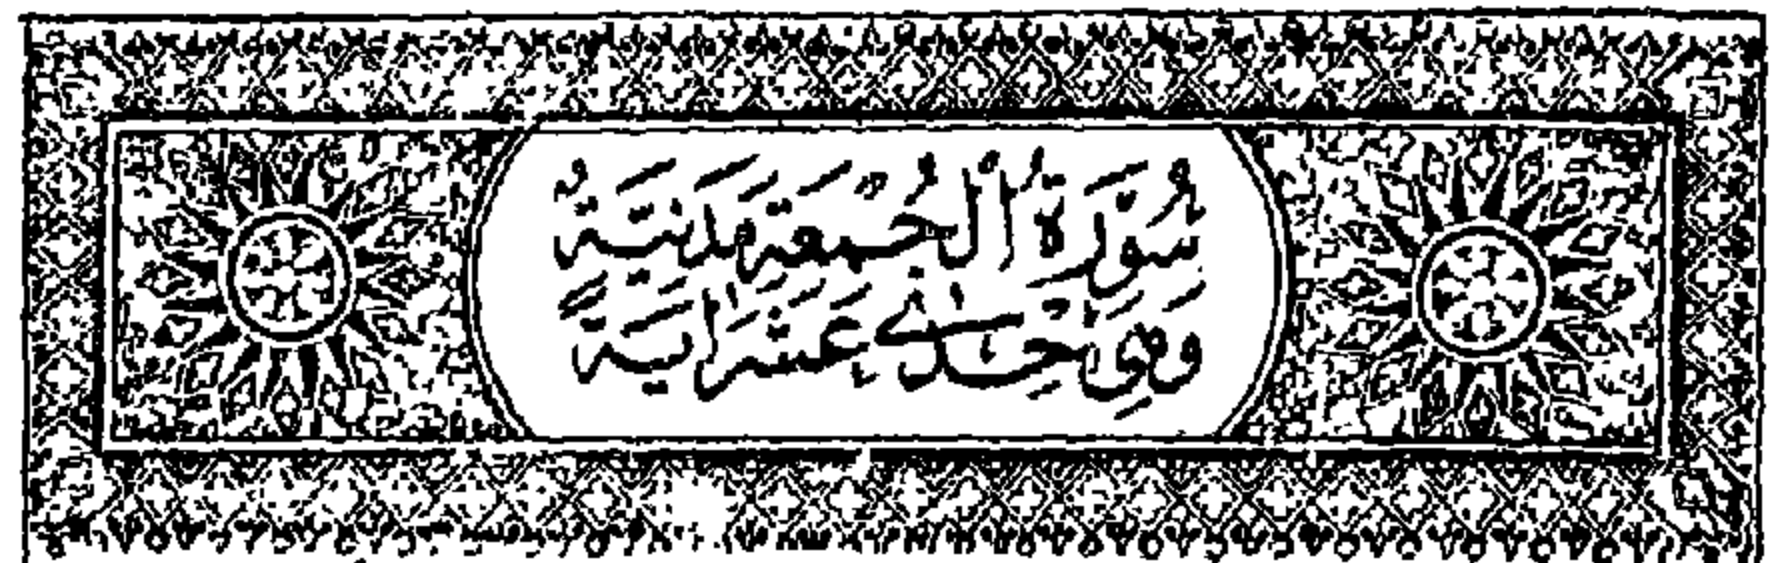 سُورَةُ الْجُمُعَةِ مَدَنِيَّةٌ
وَهِيَ إِحْدَى عَشَرَ آيَةً